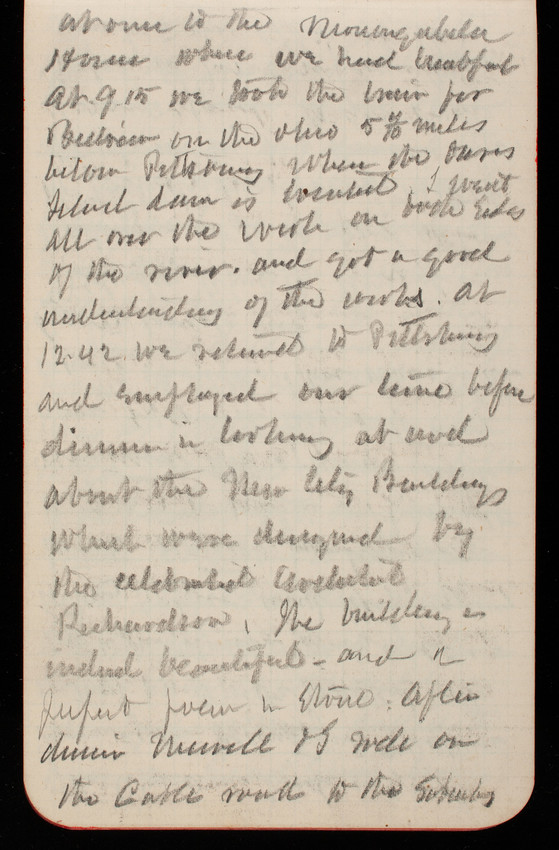 at once to the Monongahela
House where we had breakfast
At 9.15 we took the train for
on the Ohio 5 miles
below Pittsburg where the Davis
Island dam is located. I went
all over the work on both sides
of the river. and got a good
understanding of the works. At
12.42 we returned to Pittsburg
and employed our time before
dinner in looking at and
about the New City Buildings
which were designed by
the celebrated Architect
Richardson. The building is
indeed beautiful - and a
perfect poem in stone. After
dinner Newell & I rode on
the Cable road to the Suburbs